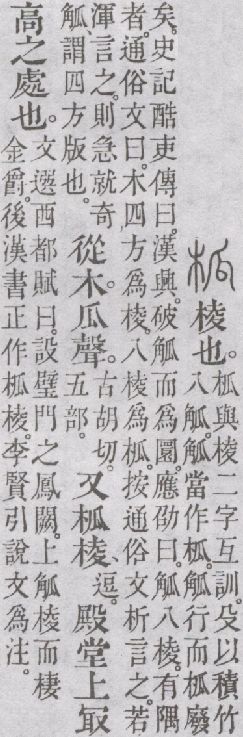 柧棱也。柧與棱二字互訓。殳以積竹八觚。觚當作柧。觚行而柧廢
矣。史記酷吏傳曰。漢興。破觚而爲圜。應劭曰。觚八棱。有隅者。通俗文曰。木四方爲棱。八棱爲柧。按通俗文析言之。若
渾言之。則急就奇觚、謂四方版也。從木。瓜聲。古胡切。五部。又柧棱、逗。殿堂上冣
高之處也。文選西都賦曰。設璧門之鳳闕。上觚棱而棲金爵。後漢書正作柧棱。李賢引說文爲注。